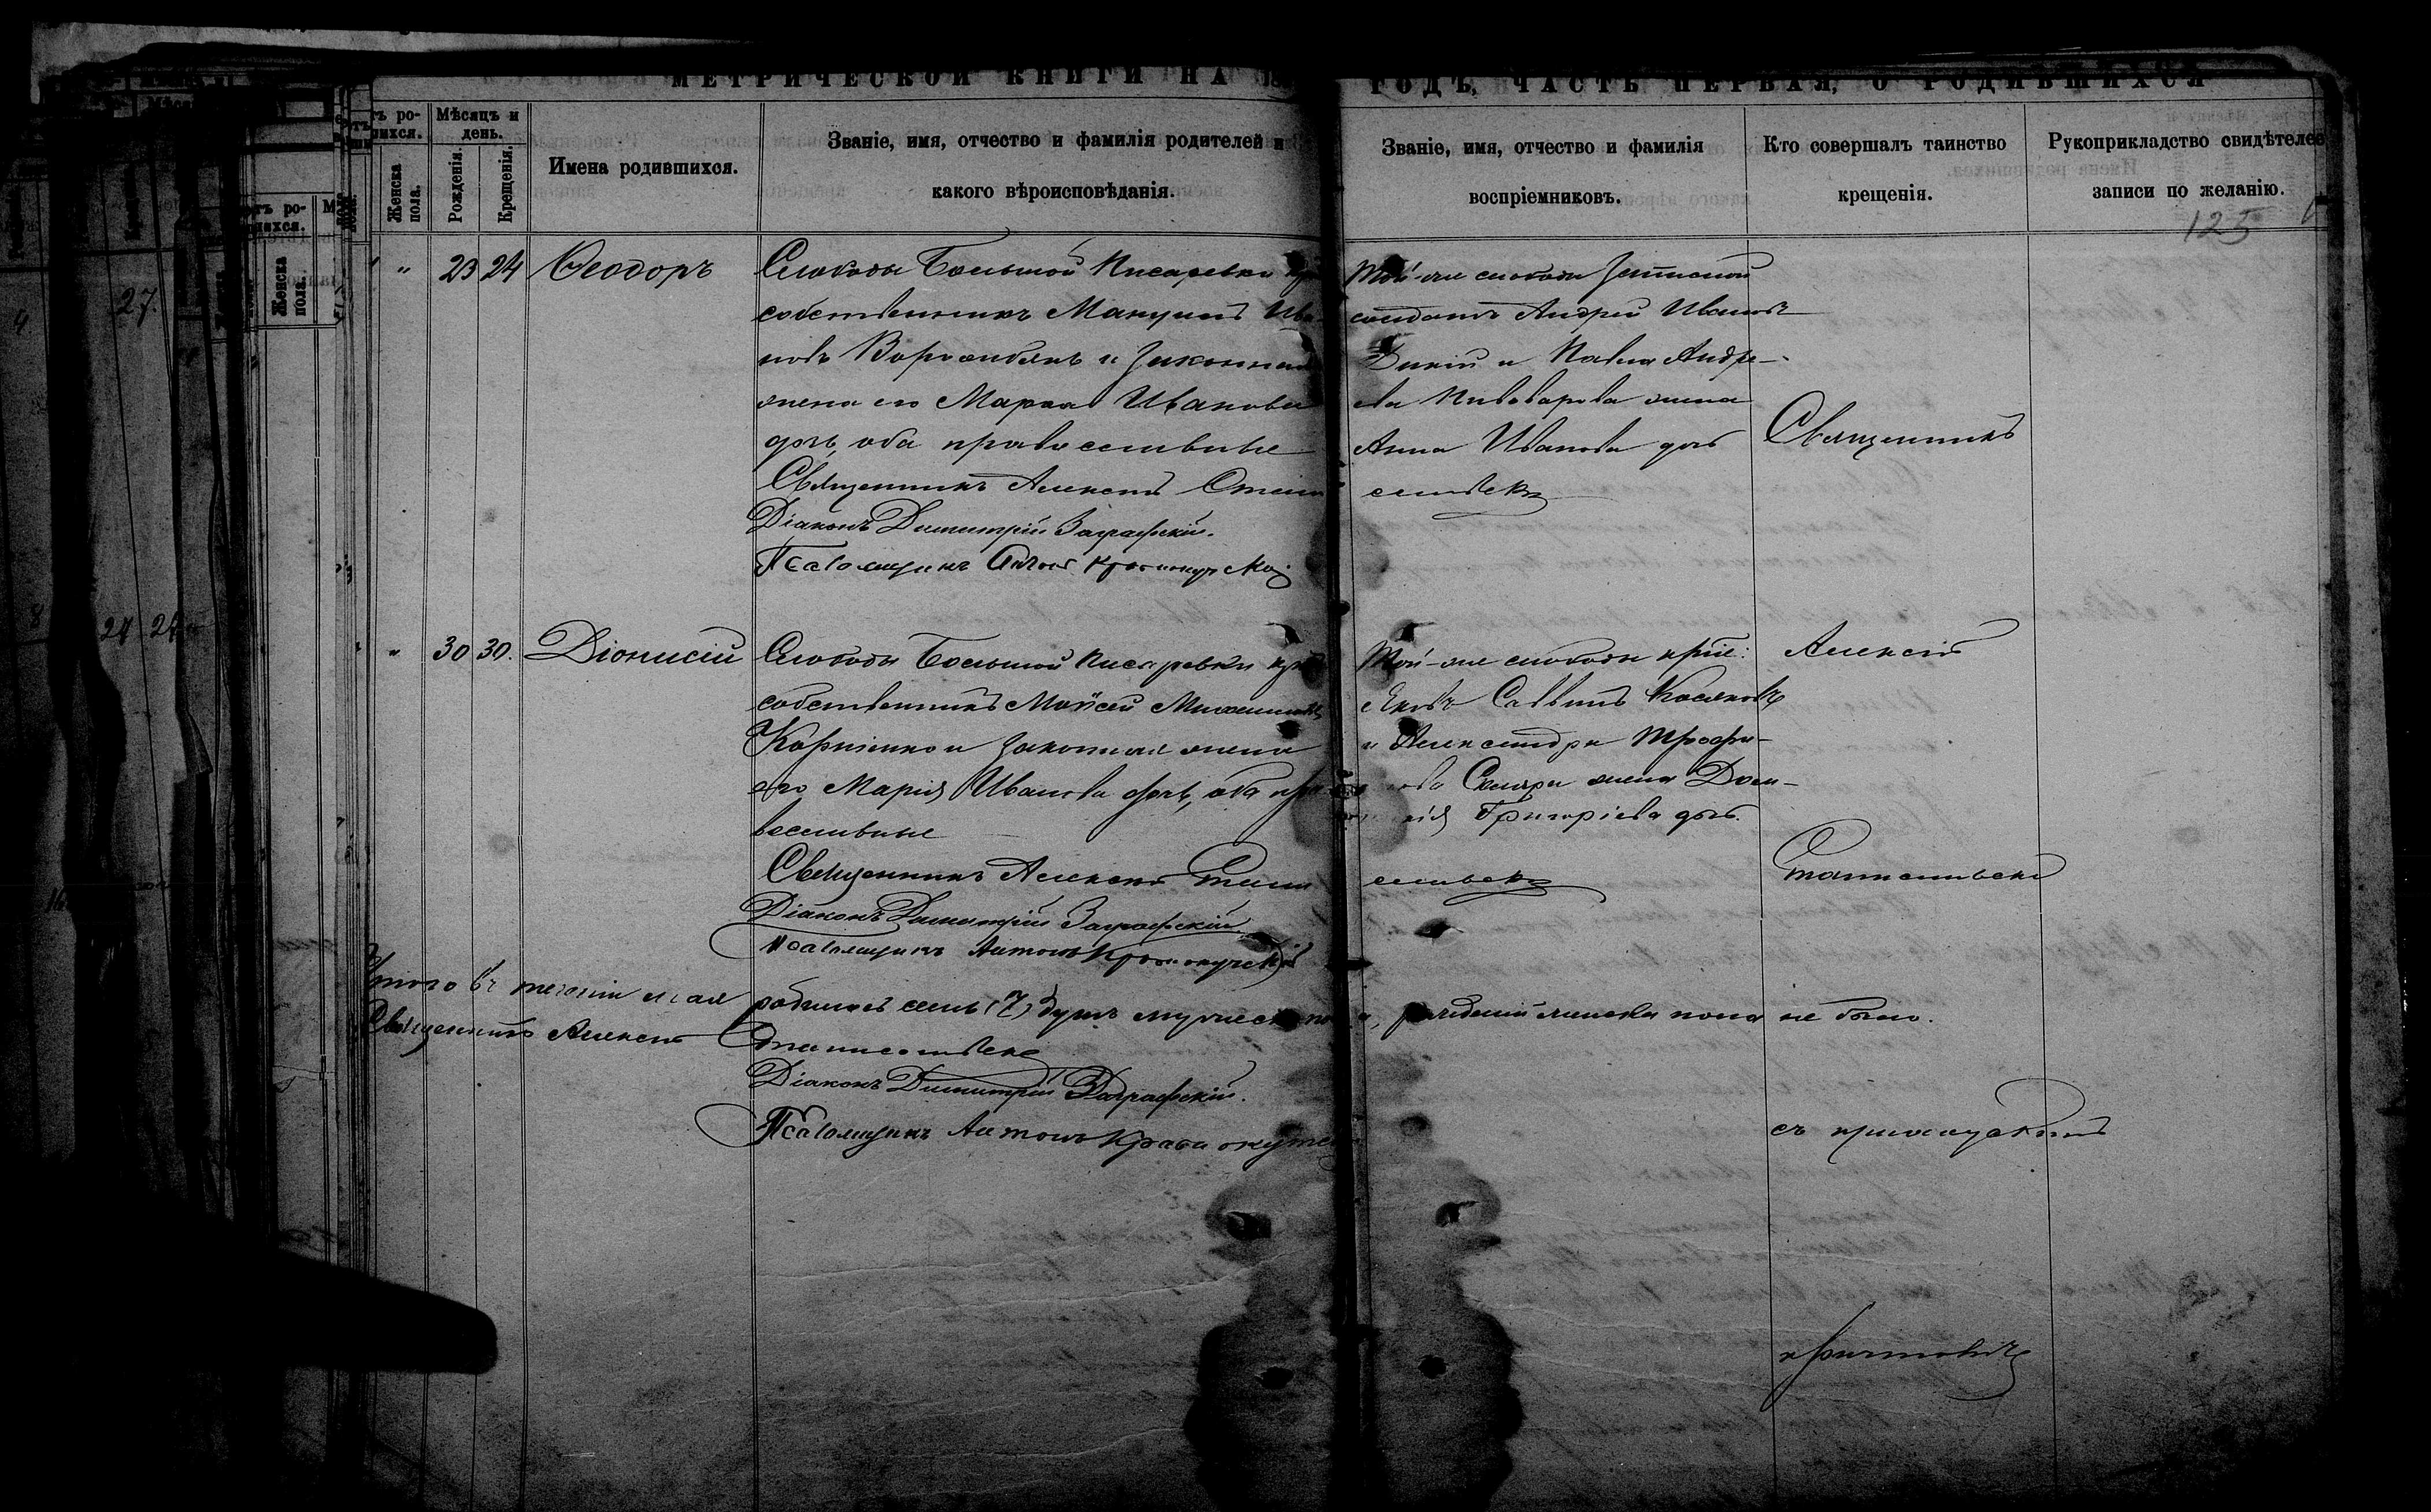 МЕТРИЧЕСКОЙ КНИГИ НА 18
ГОДЪ, ЧАСТЬ ПЕРВАЯ, О РОДИВШИХСЯ
Мѣсяцъ и день.
Женска пола.
Рожденія.
Крещенія.
Имена родившихся.
Званіе, имя, отчество и фамилія родителей и
какого вѣроисповѣданія.
Званіе, имя, отчество и фамилія
воспріемниковъ.
Кто совершалъ таинство
крещенія.
Рукоприкладство свидѣтелей
записи по желанію.
125
" 23 24 Ѳеодоръ
Слободы Большой Писаревки
собственникъ Мануилъ Ива-
новъ Ворожбянъ и законная
жена его Марѳа Иванова
дочь, оба православные
Священникъ Алексѣй Стани
Діаконъ Димитрій Заграфскій.
Псаломщикъ Антонъ Краснокутскій
Той-же слободы запасной
солдатъ Андрей Ивановъ
Дикій и Павла Андре-
ева Пивоварова жена
Анна Иванова дочь
славскій
Священникъ
" 30 30. Діонисій
Слободы Большой Писаревки
собственникъ Моѵсей Михаиловъ
Корніенко и законная жена
его Марія Иванова дочь, оба пра-
вославные
Священникъ Алексѣй Стани
Діаконъ Димитрій Заграфскій
Псаломщикъ Антонъ Краснокутскій
Той-же слободы
Яковъ Саввинъ Косяковъ
и Александра Трофи-
мова Скляра жена Дом-
Григоріева дочь.
славскій
Алексѣй
Станиславскій
Итого въ теченіи мая родилось семь (7) душъ мужеска пола, рожденій женска пола не было.
Священникъ Алексѣй Станиславскій
Діаконъ Димитрій Заграфскій.
Псаломщикъ Антонъ Краснокутскій
съ
27.
24 24